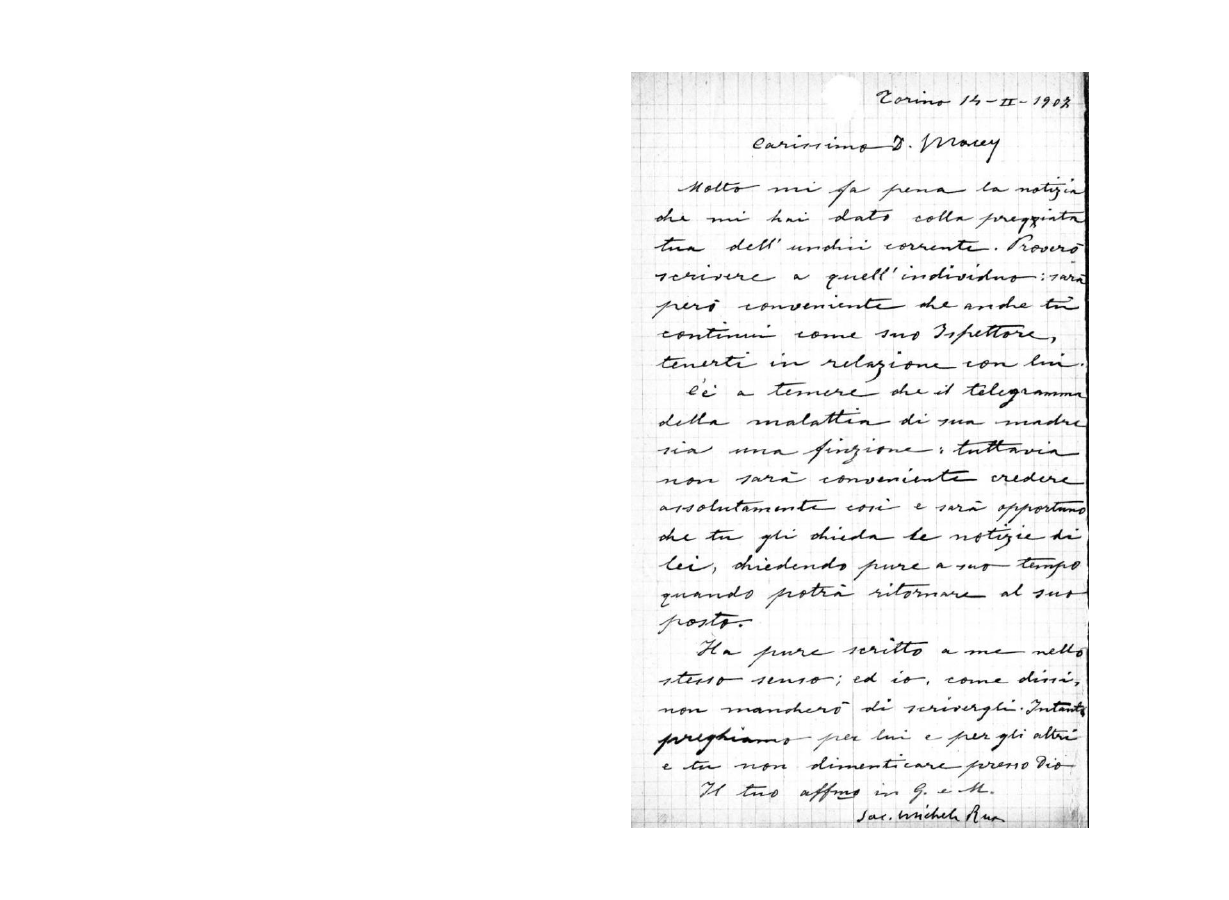 Torino 14-II-1907
Carissimo D. Macey
Molto mi fa pena la notizia
che mi hai dato colla preggiata
tua dell'undici corrente. Proverò
scrivere a quell'individuo: sarà
però conveniente che anche tu
continui come suo Ispettore,
tenerti in relazione con lui.
C'è a temere che il telegramma
della malattia di sua madre
sia una finzione: tuttavia
non sarà conveniente credere
assolutamente così e sarà opportuno
che tu gli chieda le notizie di
lei, chiedendo pure a suo tempo
quando potrà ritornare al suo
posto.
Ha pure scritto a me nello
stesso senso; ed io, come dissi,
non mancherò di scrivergli. Intanto
preghiamo per lui e per gli altri
e tu non dimenticare presso Dio
Il tuo affmo in G. e M.
Sac. Michele Rua